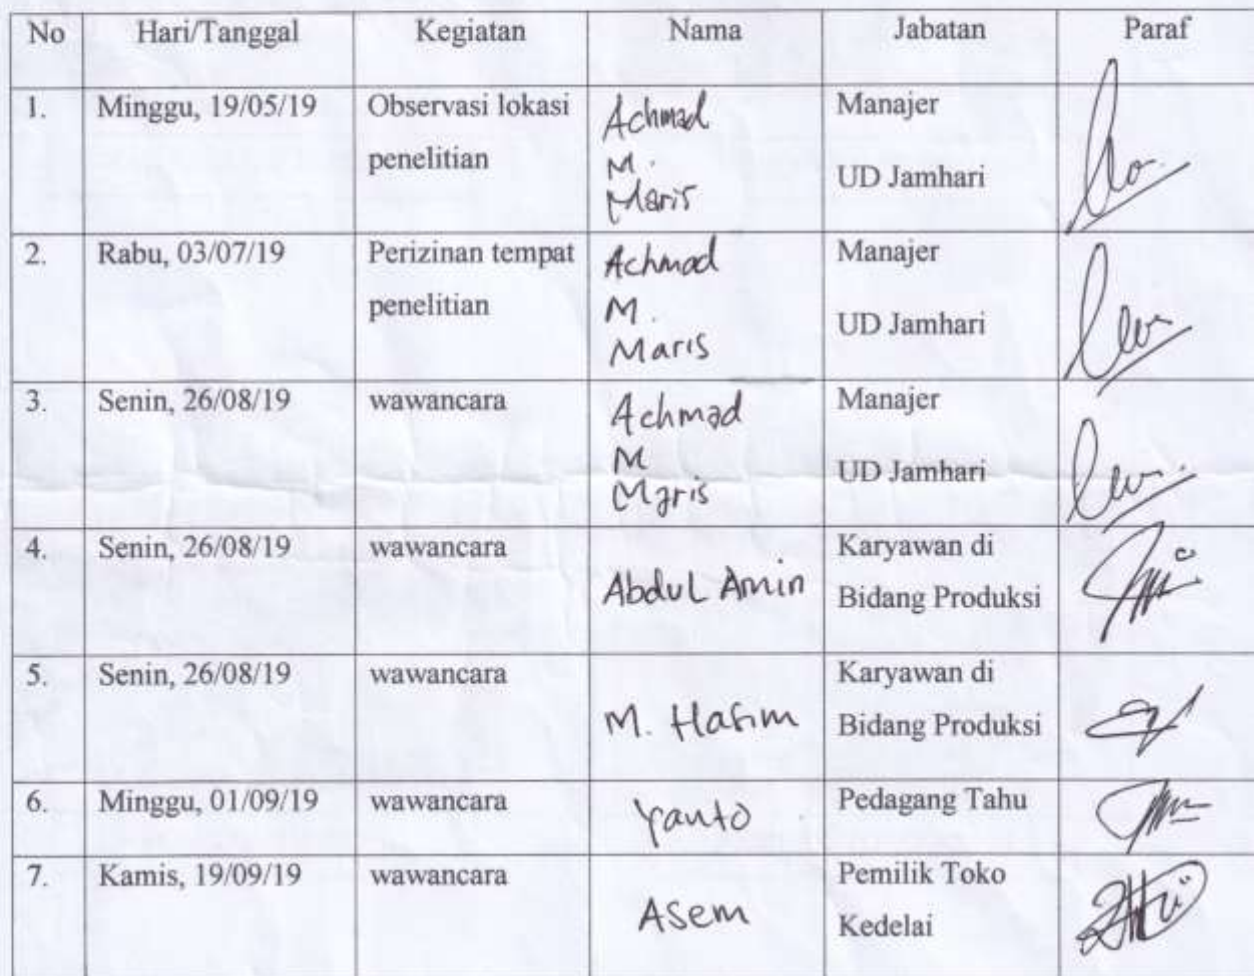 No Hari/Tanggal Kegiatan Nama Jabatan Paraf
1. Minggu, 19/05/19 Observasi lokasi penelitian Achmad M. Maris Manajer UD Jamhari
2. Rabu, 03/07/19 Perizinan tempat penelitian Achmad M. Maris Manajer UD Jamhari
3. Senin, 26/08/19 wawancara Achmad M Maris Manajer UD Jamhari
4. Senin, 26/08/19 wawancara Abdul Amin Karyawan di Bidang Produksi
5. Senin, 26/08/19 wawancara M. Karyawan di Bidang Produksi
6. Minggu, 01/09/19 wawancara Yanto Pedagang Tahu
7. Kamis, 19/09/19 wawancara Asem Pemilik Toko Kedelai